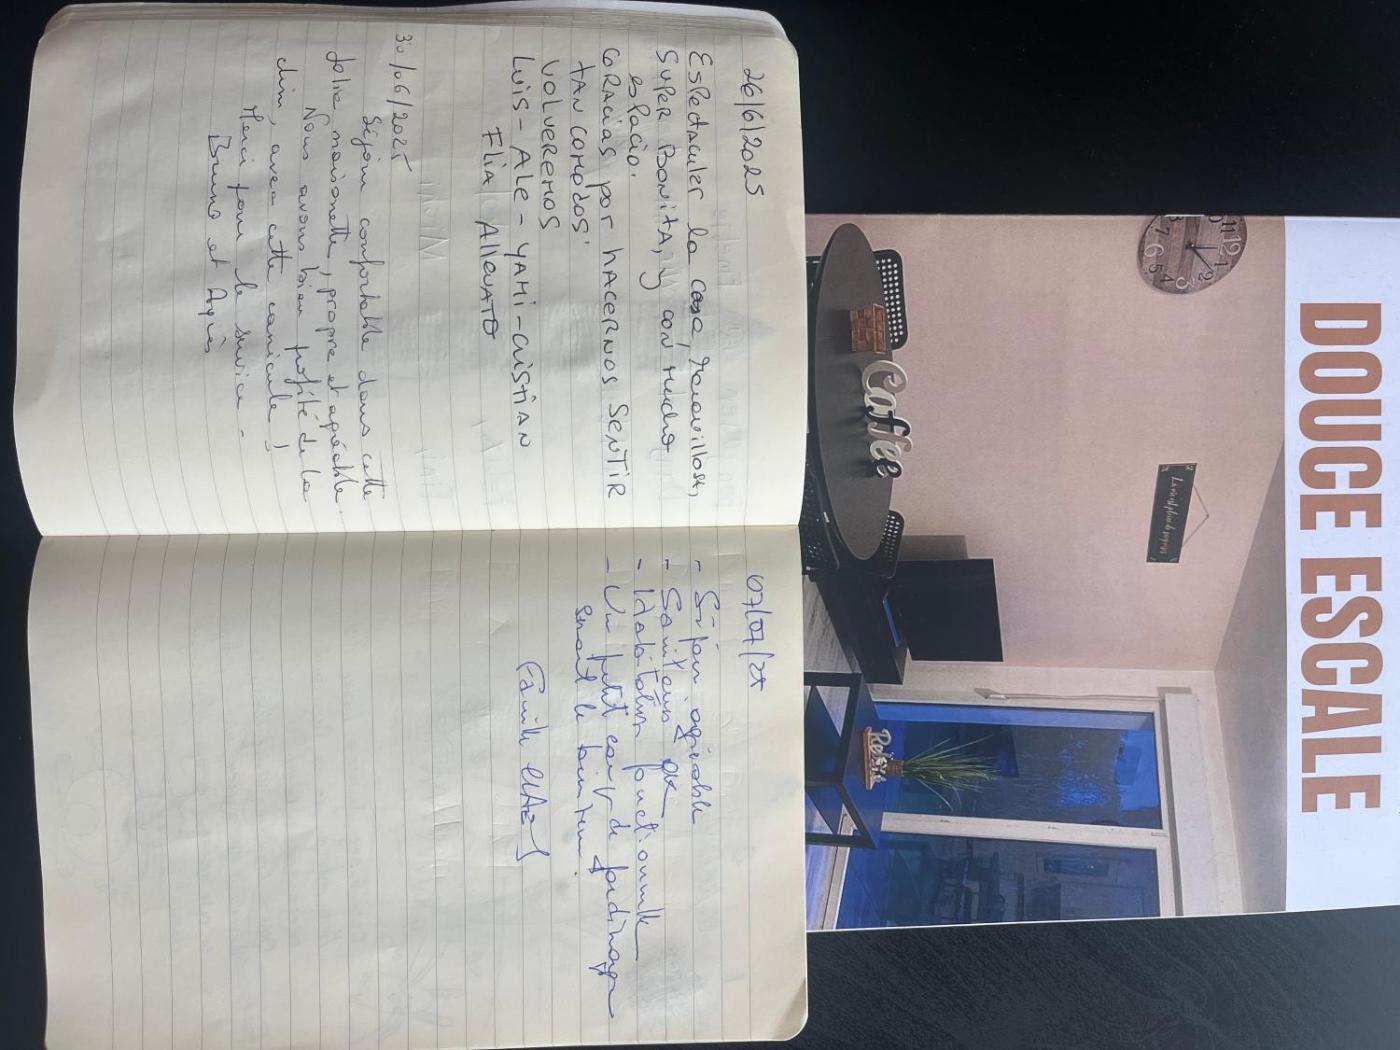 26/6/2025
Espectacular la casa, maravillosa,
super Bonita, y con mucho
espacio.
GRACIAS por hACERNOS SENTIR
TAN COMODOS.
VOLVEREMOS
LUIS - ALE - YAMI - CRISTIAN
FLIA
30/06/2025
Séjour confortable dans cette
jolie maisonette, propre et agréable.
Nous avons bien profité de la
clim, avec cette canicule !
Merci pour le service -
Bruno et Agnès
07/07/25
- Séjour agréable
- Sanitaires ok
- fonctionnelle
- Un petit coup de jardinage
serait le bienvenu.
Famille
DOUCE ESCALE
Coffee
Relax
12
11
1
2
3
4
5
6
7